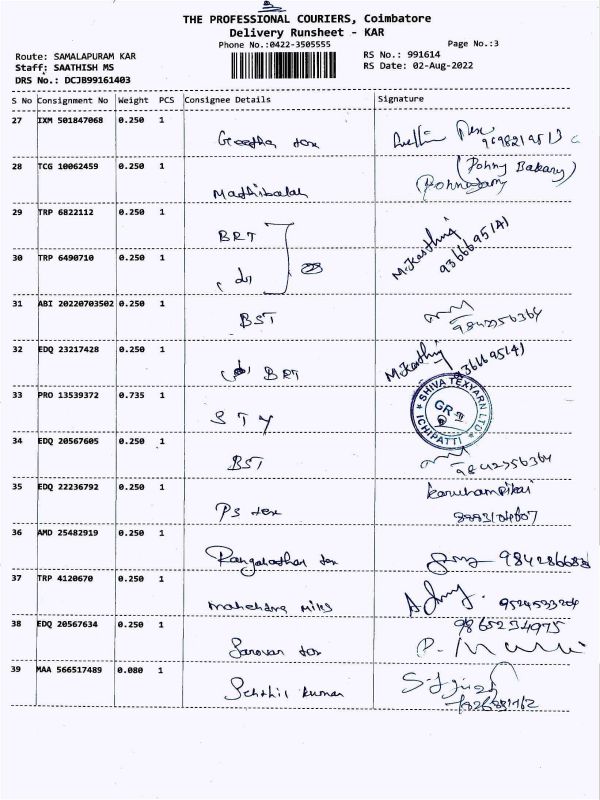 THE PROFESSIONAL COURIERS, Coimbatore
Delivery Runsheet - KAR
Phone No.:0422-3505555
Page No.:3
Route: SAMALAPURAM KAR
RS No.: 991614
Staff: SAATHISH MS
RS Date: 02-Aug-2022
DRS No.: DCJB99161403
S No Consignment No Weight PCS Consignee Details Signature
27 IXM 501847068 0.250 1
Geetha tex
9698219513
28 TCG 10062459 0.250 1
Mathibalah
(Pohny Bakary)
29 TRP 6822112 0.250 1
BRT
M.Karthi
9366695141
30 TRP 6490710 0.250 1
do
31 ABI 20220703502 0.250 1
BST
9842256364
32 EDQ 23217428 0.250 1
BRT
M.Karthi
9366695141
33 PRO 13539372 0.735 1
STY
SHIVA TEXYARN LTD.
GR
ICHIPATTI
34 EDQ 20567605 0.250 1
BST
9842256364
35 EDQ 22236792 0.250 1
PS tex
36 AMD 25482919 0.250 1
tex
37 TRP 4120670 0.250 1
mahendra mills
38 EDQ 20567634 0.250 1
Saravan tex
9865234975
39 MAA 566517489 0.080 1
Senthil kumar